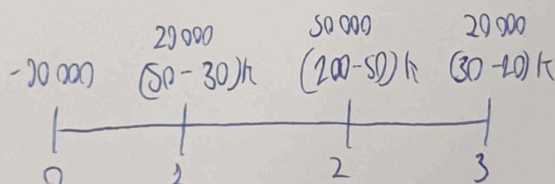 20000 50000 20000
-90000 (50-30)k (200-50)k (30-10)k
0 1 2 3